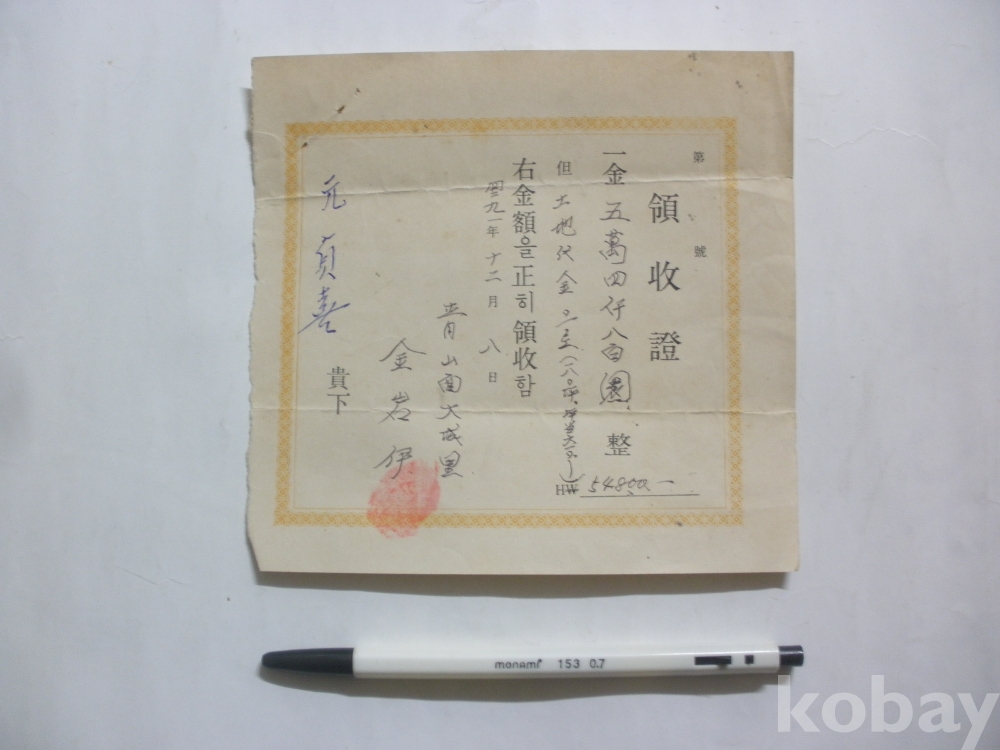 第 號
領收證
一金 五萬四仟八百圜 整
HW 54800.-
但 土地代金
右金額을正히領收함
四二九一年 十二月 八日
靑山面大成里
金岩伊
元貞喜 貴下
monami 153 0.7
kobay